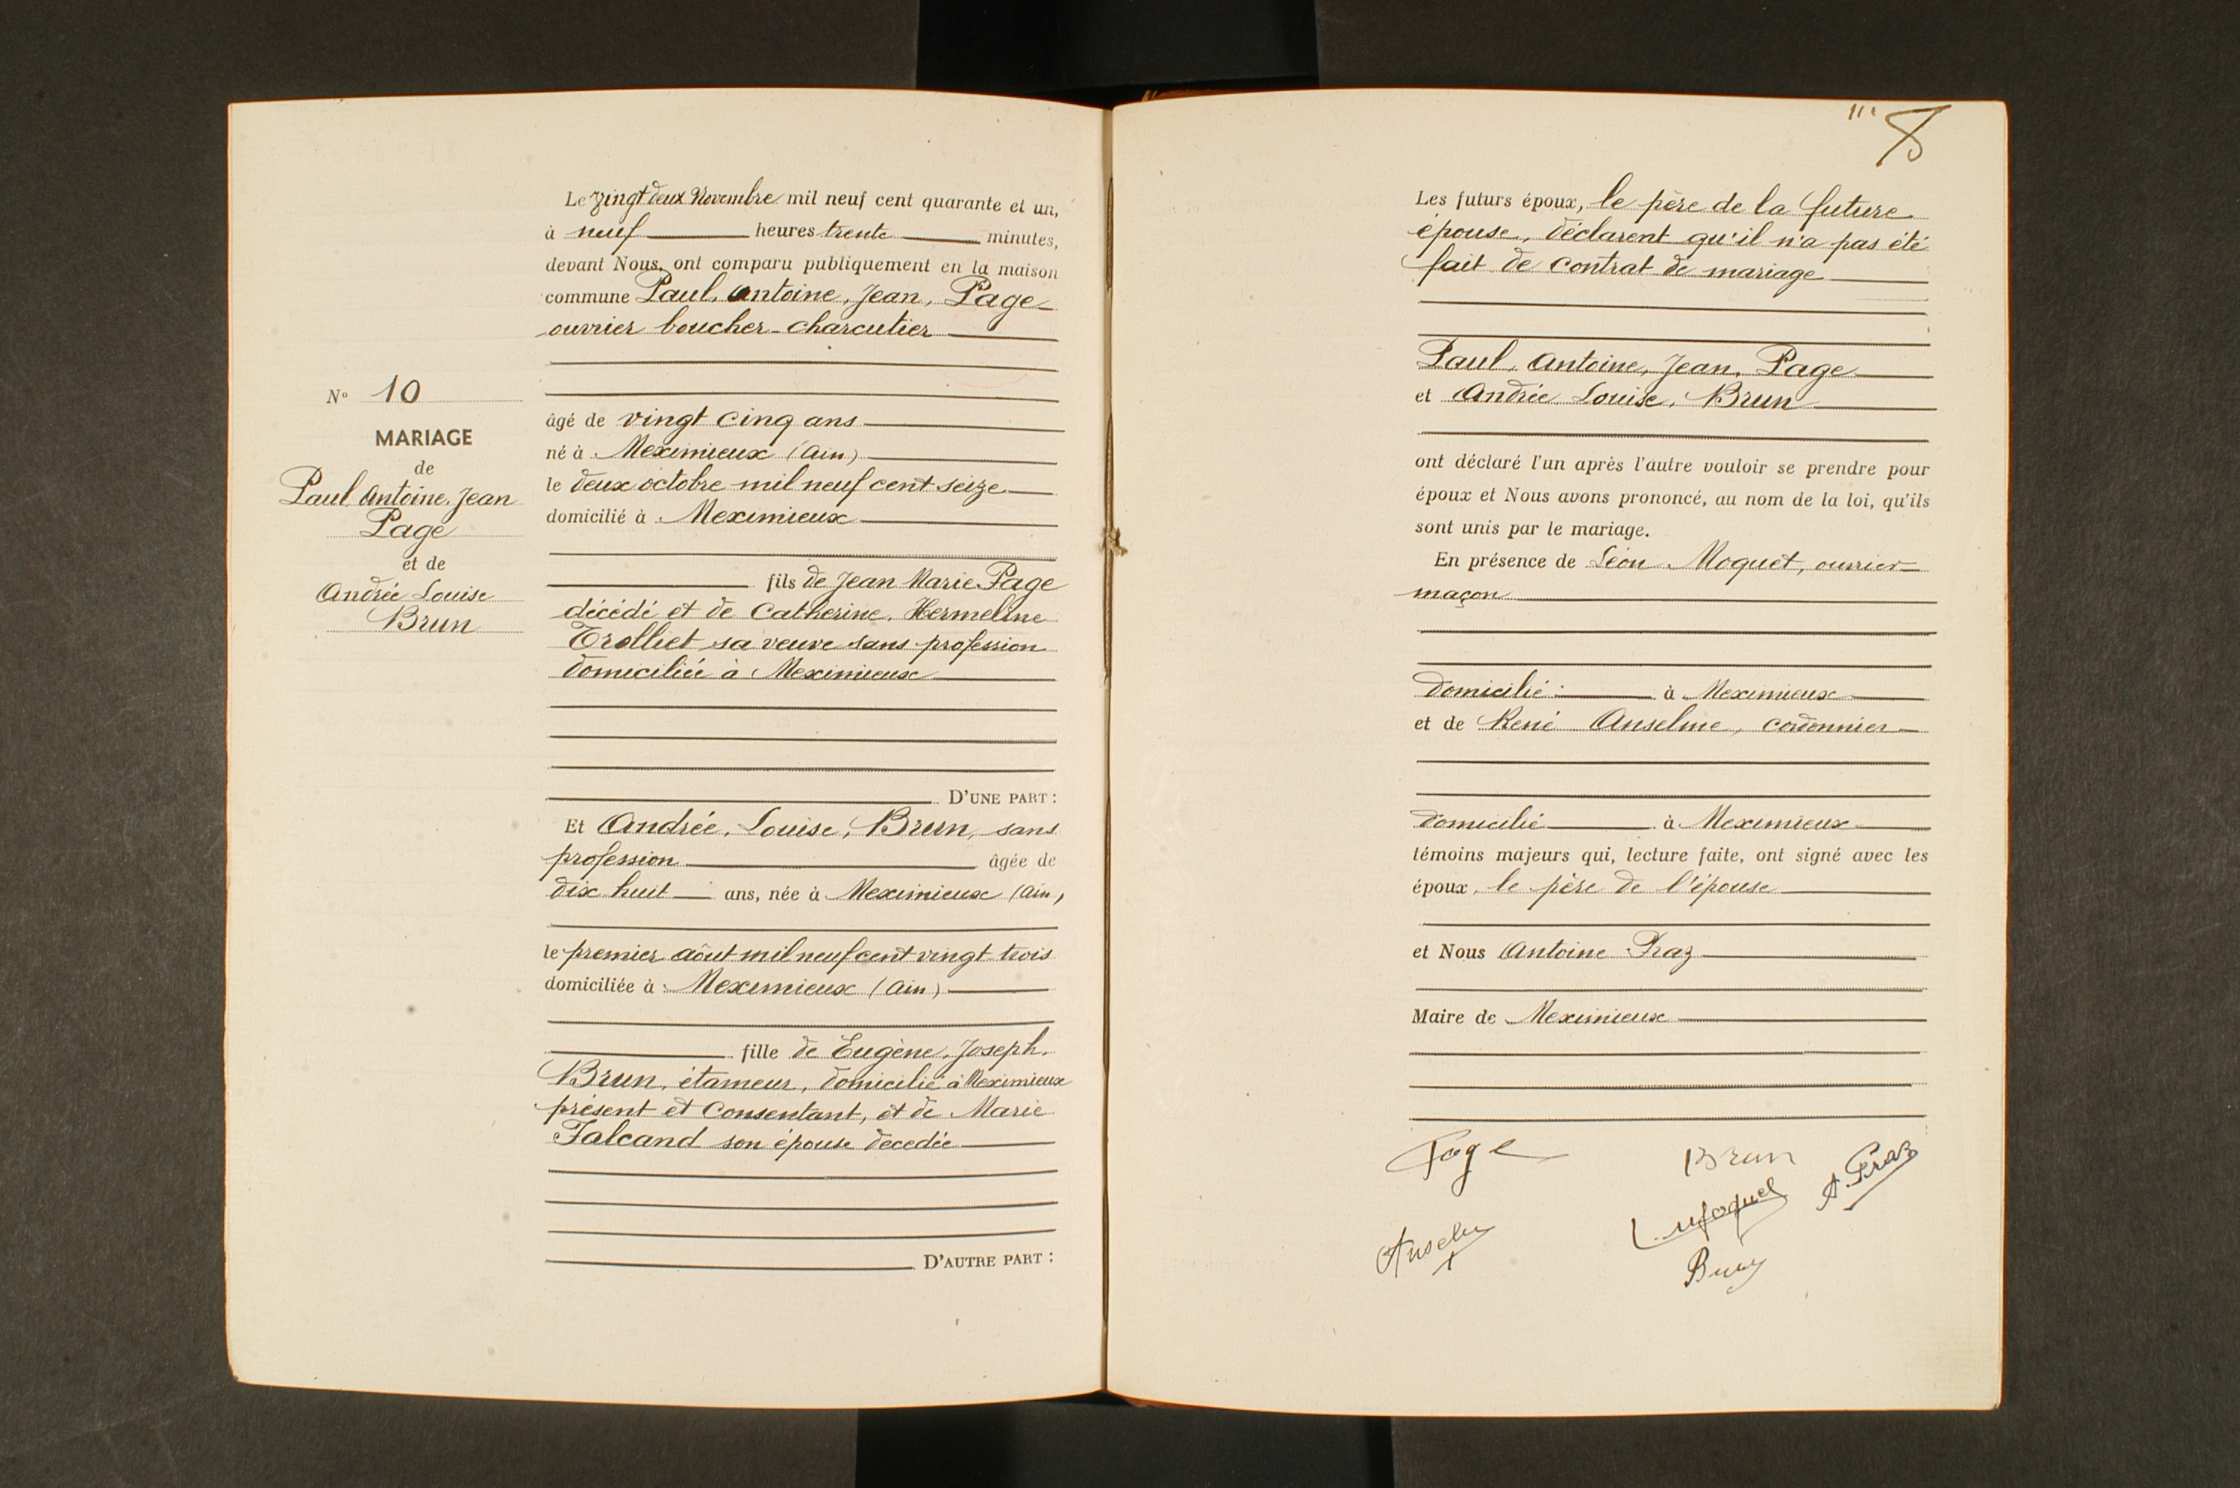 Le vingt deux Novembre mil neuf cent quarante et un,
à neuf heures trente minutes,
devant Nous, ont comparu publiquement en la maison
commune Paul, Antoine, Jean, Page
ouvrier boucher-charcutier
N° 10
MARIAGE
de
Paul, Antoine, Jean
Page
et de
Andrée Louise
Brun
âgé de vingt cinq ans
né à Meximieux (Ain)
le deux octobre mil neuf cent seize
domicilié à Meximieux
fils de Jean Marie Page
décédé et de Catherine, Hermeline
Trolliet sa veuve sans profession
domiciliée à Meximieux
D'UNE PART :
Et Andrée, Louise, Brun, sans
profession âgée de
dix huit ans, née à Meximieux (Ain)
le premier aôut mil neuf cent vingt trois
domiciliée à Meximieux (Ain)
fille de Eugène, Joseph,
Brun, étameur, domicilié à Meximieux
présent et consentant, et de Marie
Falcand son épouse décedée
D'AUTRE PART :
8
Les futurs époux, le père de la future
épouse, déclarent qu'il n'a pas été
fait de contrat de mariage
Paul, Antoine, Jean, Page
et Andrée Louise, Brun
ont déclaré l'un après l'autre vouloir se prendre pour
époux et Nous avons prononcé, au nom de la loi, qu'ils
sont unis par le mariage.
En présence de Léon Moquet, ouvrier
maçon
domicilié à Meximieux
et de René Anselme, cordonnier
domicilié à Meximieux
témoins majeurs qui, lecture faite, ont signé avec les
époux, le père de l'épouse
et Nous Antoine Praz
Maire de Meximieux
Page
Brun
A. Praz
L. Moquet
Anselme
Brun